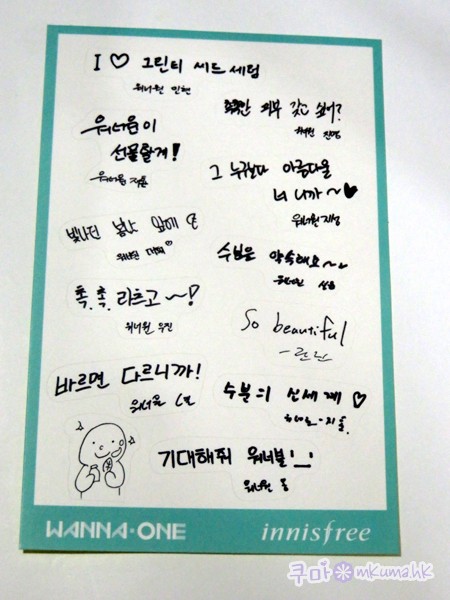 I ♡ 그린티 씨드 세럼
워너원 민현
피부 갖고 싶어?
워너원 진영
워너원이
선물할게!
워너원 지훈
그 누구보다 아름다울
너 니까~♥
워너원 재성
빛나던 봄날
워너원 대휘♡
수분은 약속해요~
워너원 성운
촉.촉. 라츠고~!
워너원 우진
So beautiful
바르면 다르니까!
워너원
수분의 신세계 ♡
기대해줘 워너블!
워너원
WANNA·ONE
innisfree
쿠마 mkuma.hk